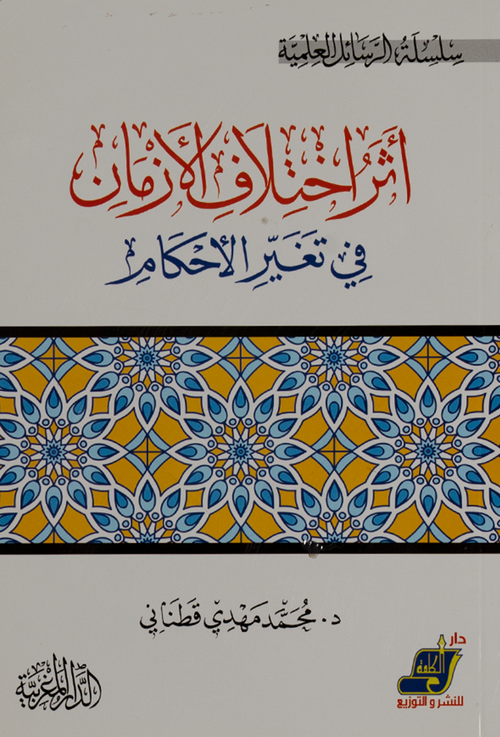 سِلسِلَةُ الرَّسَائِل العِلمِيَّة
أَثَرُ اخْتِلَافِ الأَزمَانِ
فِي تَغَيُّرِ الأَحكَامِ
د. مُحَمَّد مَهدِي قَطنَانِي
دار
الكلمة
للنشر والتوزيع
الدَّارُ المَغرِبِيَّة